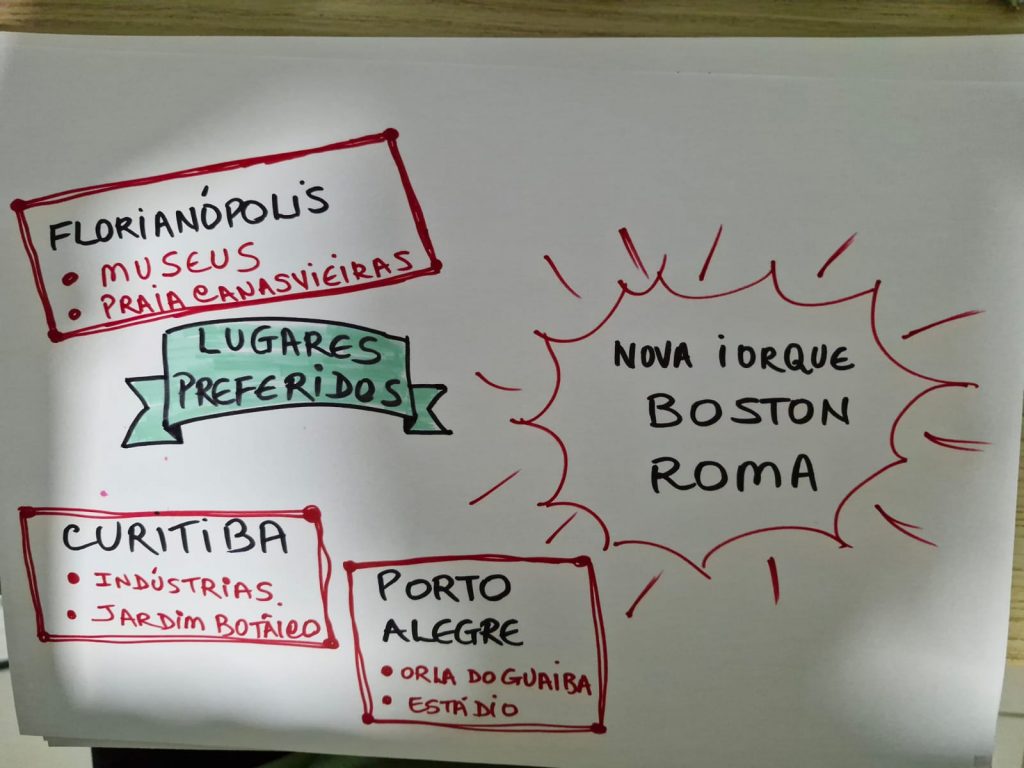 FLORIANÓPOLIS
• MUSEUS
• PRAIA CANASVIEIRAS
LUGARES
PREFERIDOS
NOVA IORQUE
BOSTON
ROMA
CURITIBA
• INDÚSTRIAS.
• JARDIM BOTÂICO
PORTO
ALEGRE
• ORLA DO GUAIBA
• ESTÁDIO